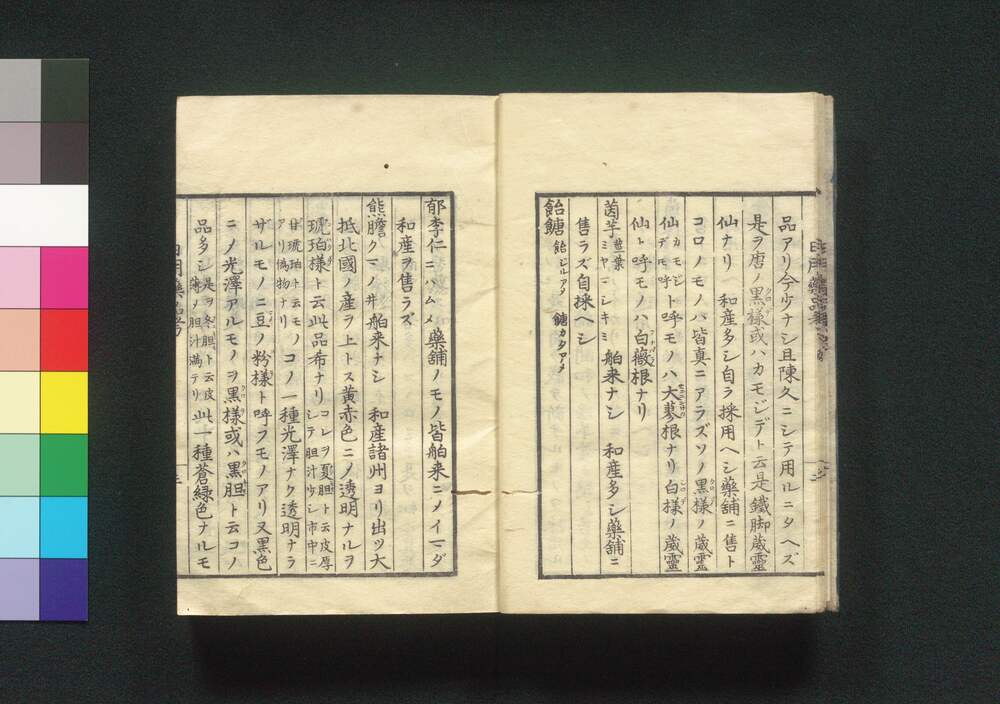 品アリ今少ナシ且陳久ニシテ用ルニタヘズ
是ヲ唐ノ黒様或ハカモジデト云是鐵脚葳靈
仙ナリ 和産多シ自ラ採用ヘシ藥舗ニ售ト
コロノモノハ皆真ニアラズソノ黒様ノ葳靈
仙カモジデモ呼ト呼モノハ大蓼根ナリ白様ノ葳靈
仙ト呼モノハ白薇根ナリ
茵芋 莖葉 ミヤマシキミ 舶来ナシ 和産多シ藥舗ニ
售ラズ自採ヘシ
飴餹 飴ジルアメ 餹カタアメ
郁李仁 ニハムメ 藥舗ノモノ皆舶来ニメイマダ
和産ヲ售ラズ
熊膽 クマノ井 舶来ナシ 和産諸州ヨリ出ツ大
抵北國ノ産ヲ上トス黄赤色ニメ透明ナルヲ
琥珀様ト云此品希ナリ コレヲ夏胆ト云皮厚シテ胆汁少シ市中ニ
甘琥珀ト云モノアリ偽物ナリ コノ一種光澤ナク透明ナラ
ザルモノニ豆ノ粉様ト呼フモノアリ又黒色
ニメ光澤アルモノヲ黒様或ハ黒胆ト云コノ
品多シ 是ヲ冬胆ト云皮薄メ胆汁満テリ 此一種蒼緑色ナルモ